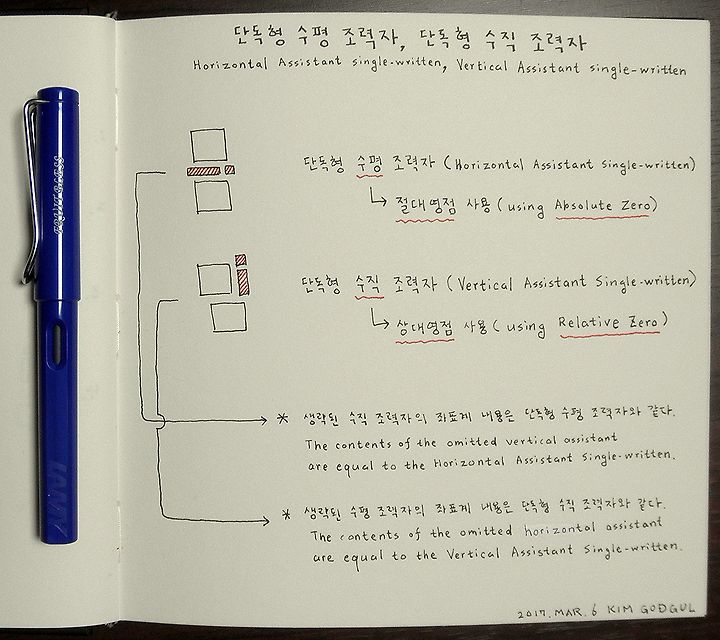 단독형 수평 조력자, 단독형 수직 조력자
Horizontal Assistant single-written, Vertical Assistant single-written
단독형 수평 조력자 (Horizontal Assistant Single-written)
절대영점 사용 (using Absolute Zero)
단독형 수직 조력자 (Vertical Assistant Single-written)
상대영점 사용 (using Relative Zero)
* 생략된 수직 조력자의 좌표계 내용은 단독형 수평 조력자와 같다.
The contents of the omitted vertical assistant
are equal to the Horizontal Assistant Single-written.
* 생략된 수평 조력자의 좌표계 내용은 단독형 수직 조력자와 같다.
The contents of the omitted horizontal assistant
are equal to the Vertical Assistant Single-written.
2017. MAR. 6 KIM GODGUL
LAMY